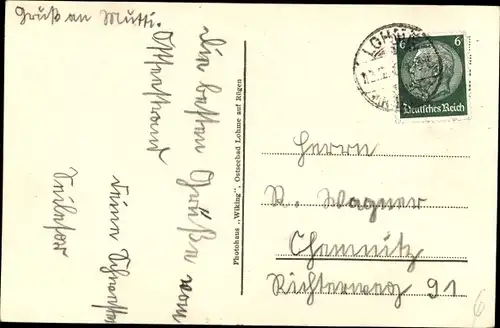 Gruß an Mutti.
Die besten Grüße vom
Ostseestrand
Deine Schwester
Photohaus „Wiking", Ostseebad Lohme auf Rügen
LOHME
6 6
Deutsches Reich
Herrn
R. Wagner
Chemnitz
Richterweg 91
6